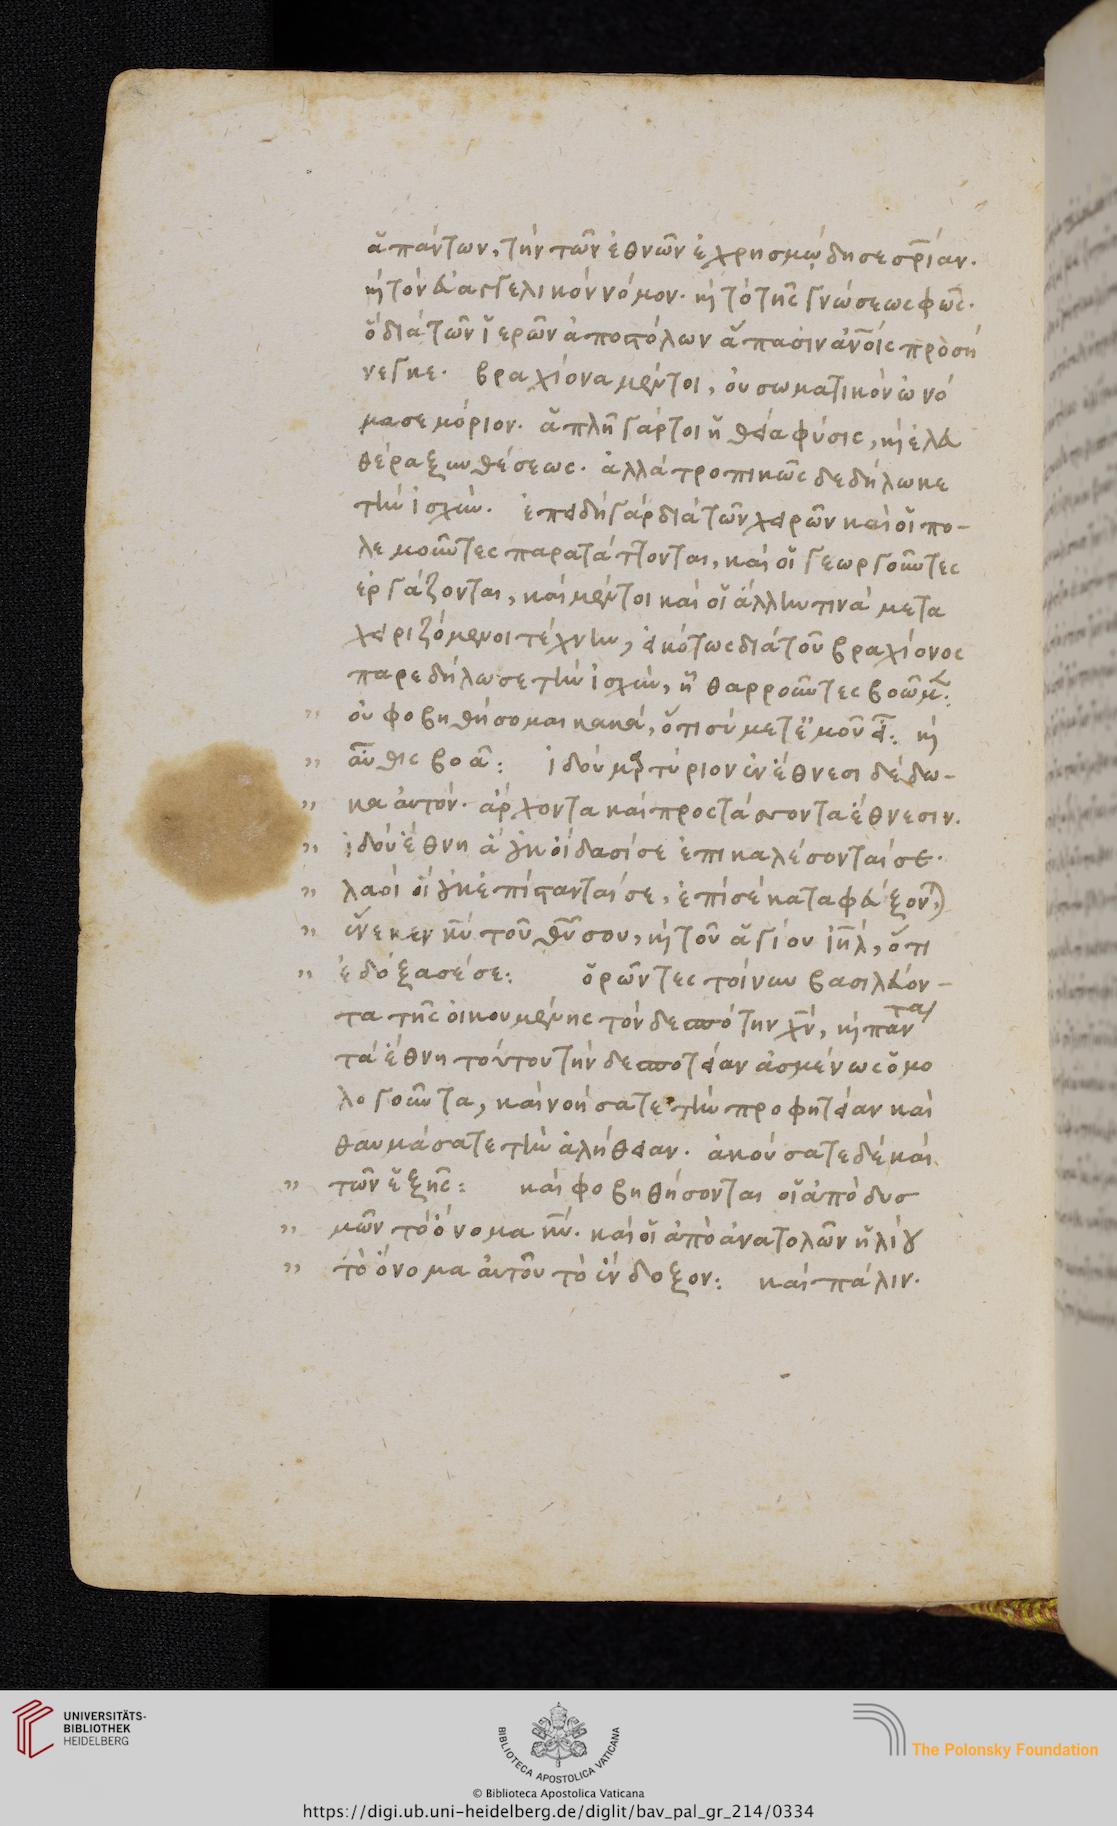 ἁπάντων, τὴν τῶν ἐθνῶν ἐχρησμῴδησε σρίαν.
κ τὸν εὐαγγελικὸν νόμον. κ τὸ τῆς γνώσεως φῶς.
ὃ διὰ τῶν ἱερῶν ἀποστόλων ἅπασιν ἀνοῖς προσή
νεγκε. βραχίονα μέντοι, οὐ σωματικὸν ὠνό
μασε μόριον. ἁπλῆ γάρ τοι ἡ θεία φύσις, κ ἐλευ
θέρα ξυνθέσεως. ἀλλὰ τροπικῶς δεδήλωκε
τὴν ἰσχύν. ἐπειδὴ γὰρ διὰ τῶν χειρῶν καὶ οἱ πο-
λεμοῦντες παρατάττονται, καὶ οἱ γεωργοῦντες
ἐργάζονται, καὶ μέντοι καὶ οἱ ἄλλην τινὰ μετα
χειριζόμενοι τέχνην, εἰκότως διὰ τοῦ βραχίονος
παρεδήλωσε τὴν ἰσχύν, ᾗ θαρροῦντες βοῶμεν:
" οὐ φοβηθήσομαι κακά, ὅτι σὺ μετ' ἐμοῦ εἶ: κ
" αὖθις βοᾶ: ἰδοὺ μρτύριον ἐν ἔθνεσι δέδω-
" κα αὐτόν. ἄρχοντα καὶ προστάσσοντα ἔθνεσιν.
" ἰδοὺ ἔθνη ἃ οὐκ οἴδασί σε ἐπικαλέσονταί σε.
" λαοὶ οἳ οὐκ ἐπίστανταί σε, ἐπὶ σὲ καταφεύξονται
" ἕνεκεν κυ τοῦ θυ σου, κ τοῦ ἁγίου ιηλ, ὅτι
" ἐδόξασέ σε: ὁρῶντες τοίνυν βασιλεύον-
τα τῆς οἰκουμένης τὸν δεσπότην χν, κ πάντα
τὰ ἔθνη τούτου τὴν δεσποτείαν ἀσμένως ὁμο
λογοῦντα, καὶ νοήσατε τὴν προφητείαν καὶ
θαυμάσατε τὴν ἀλήθειαν. ἀκούσατε δὲ καὶ
" τῶν ἑξῆς: καὶ φοβηθήσονται οἱ ἀπὸ δυσ
" μῶν τὸ ὄνομα κυ. καὶ οἱ ἀπὸ ἀνατολῶν ἡλίου
" τὸ ὄνομα αὐτοῦ τὸ ἔνδοξον: καὶ πάλιν.
UNIVERSITÄTS-
BIBLIOTHEK
HEIDELBERG
BIBLIOTECA APOSTOLICA VATICANA
The Polonsky Foundation
© Biblioteca Apostolica Vaticana
https://digi.ub.uni-heidelberg.de/diglit/bav_pal_gr_214/0334